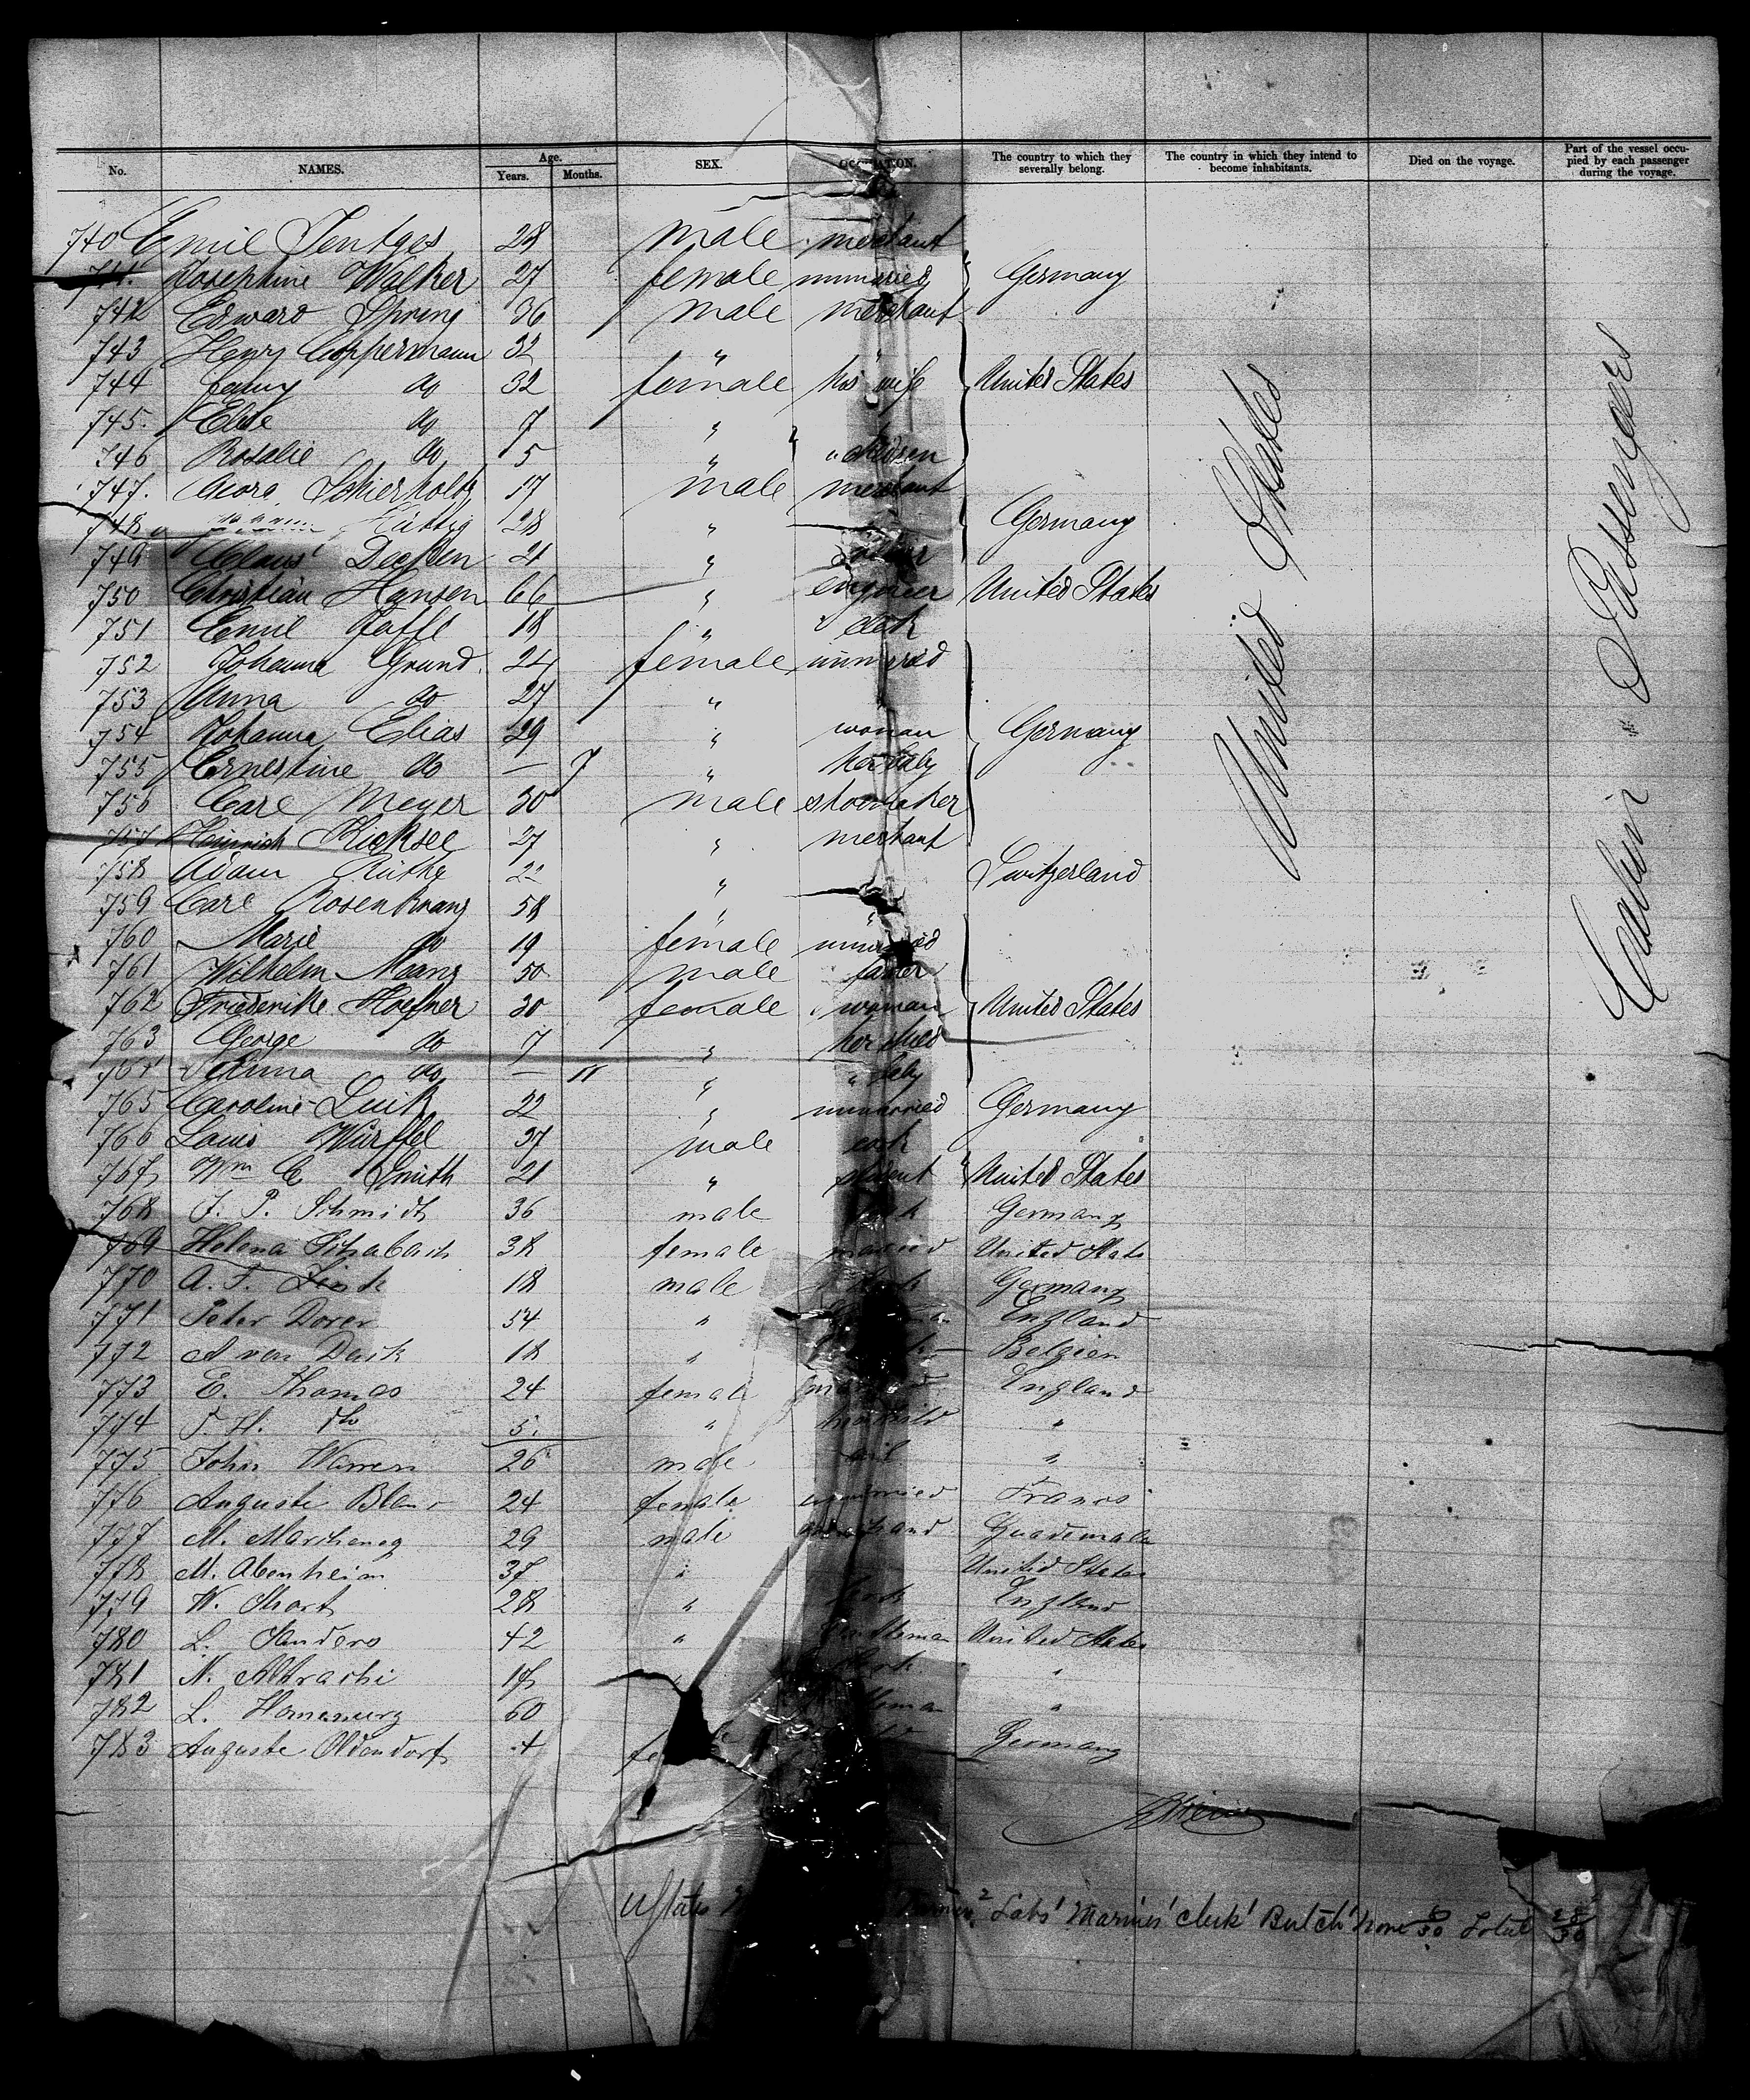 No. NAMES. Age. Years. Months. SEX. OCCUPATION. The country to which they severally belong. The country in which they intend to become inhabitants. Died on the voyage. Part of the vessel occupied by each passenger during the voyage.
740 Emil Jentges 28 male merchant
741. Josephine Walker 27 female unmarried Germany
742 Edward Spring 36 male merchant
743 Henry Coppermann 32 " "
744 Jenny do 32 female his wife United States
745. Elise do 7 "
746 Rosalie do 5 " " children
747. Georg Schierholz 17 male merchant
748 Hüttig 28 " Germany
749 Claus Decken 21 "
750 Christian Hansen 66 " engineer United States
751 Emil Jaffe 18 " clerk
752 Johanna Grund 24 female unmarried
753 Anna do 27 "
754 Johanna Elias 29 " woman Germany
755 Ernestine do — 7 " her baby
756 Carl Meyer 30 male shoemaker
757 Heinrich Kicksee 27 " merchant
758 Adam Rüthe 22 " Switzerland
759 Carl Rosenkranz 58 " "
760 Marie do 19 female unmarried
761 Wilhelm Maanz 50 male farmer
762 Friederike Hoefner 30 female woman United States
763 George do 7 " her child
764 Selma do — 11 " " baby
765 Caroline Luik 22 " unmarried Germany
766 Louis Würffel 37 male cook
767 Wm C Smith 21 " student United States
768 J. P. Schmidt 36 male Germany
769 Helena Schabach 38 female married United States
770 A. F. Fink 18 male clerk Germany
771 Peter Dorer 54 " England
772 A van Dyck 18 " Belgien
773 E. Thomas 24 female married England
774 T. H. do 5. " her child "
775 John Warren 26 male "
776 Auguste Blanc 24 female unmarried France
777 M. Marcheneq 29 male merchand Guademala
778 M. Abenheim 37 " United States
779 W. Short 28 " clerk England
780 L. Sanders 42 " Gentleman United States
781 N. Allbrachi 17 " "
782 L. Homeburg 60 "
783 Auguste Oldendorf 4 female Germany
United States
Cabin Passengers
U States Farmer 2 Labs' Mariner' clerk' Butch' none 30 Total